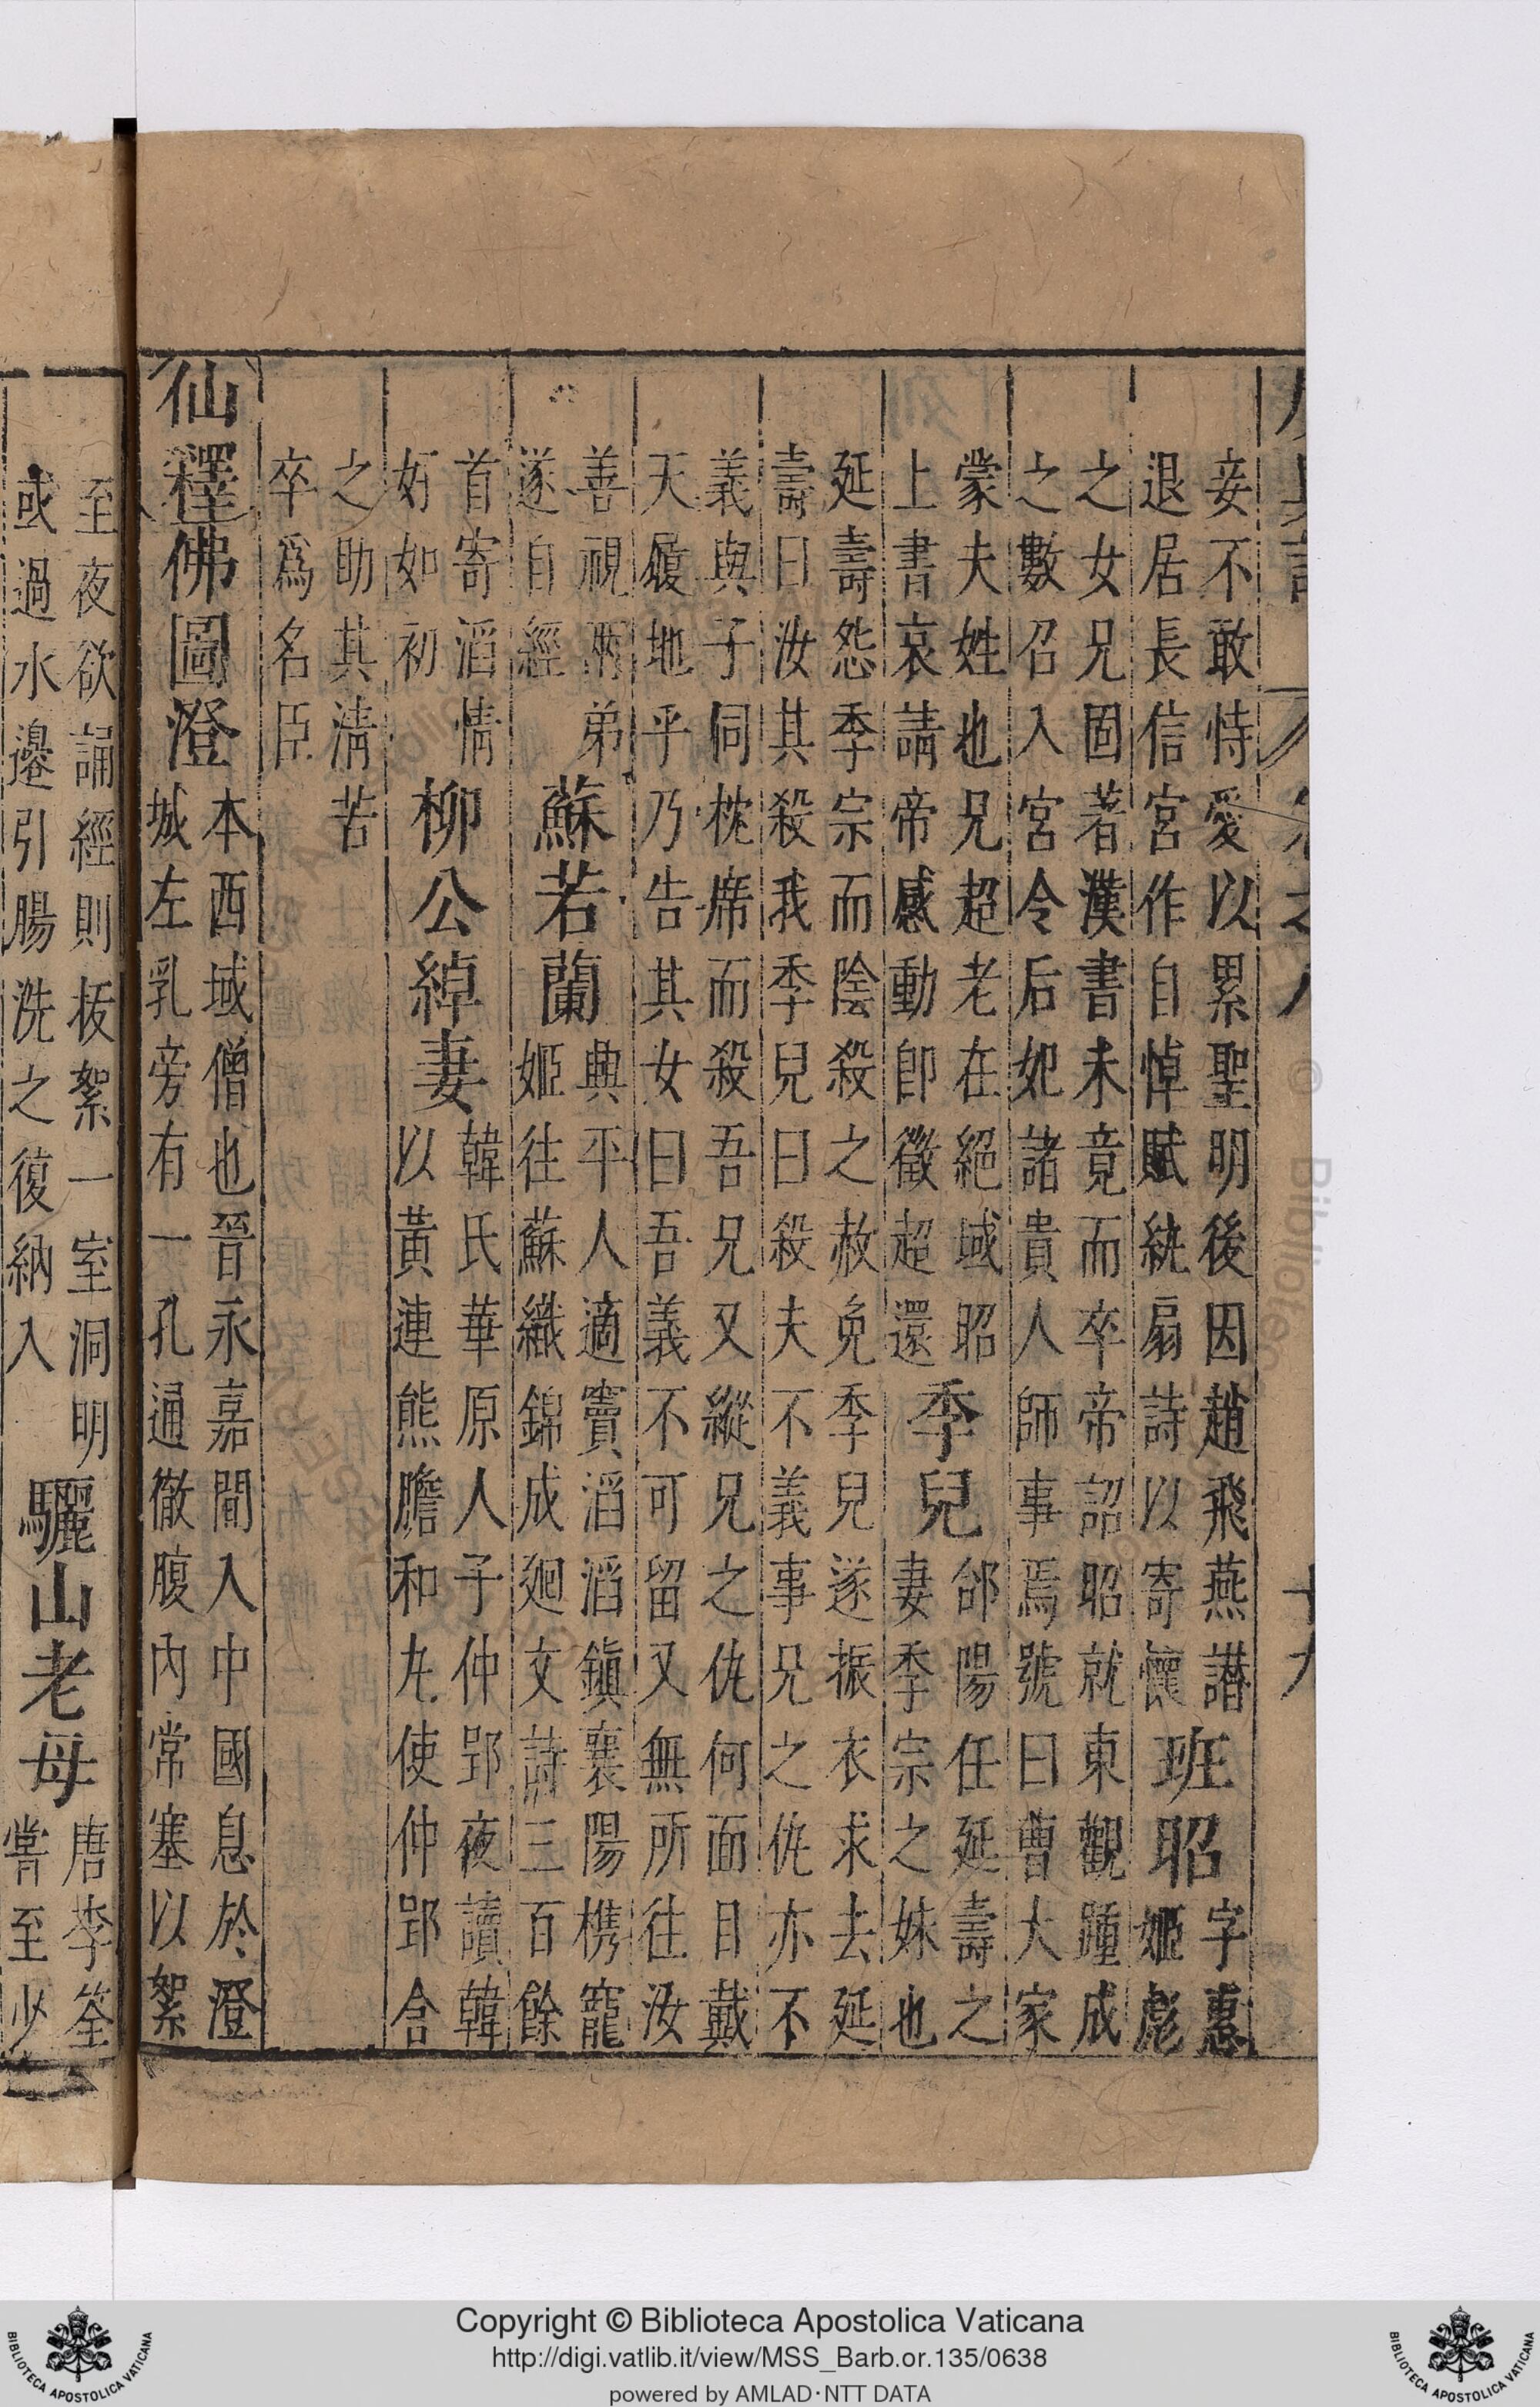 卷之八 十九
妾不敢恃愛以累聖明後因趙飛燕譖
退居長信宮作自悼賦紈扇詩以寄懷
班昭
字惠
姬彪
之女兄固著漢書未竟而卒帝詔昭就東觀踵成
之數召入宮令后妃諸貴人師事焉號曰曹大家
蒙夫姓也兄超老在絕域昭
上書哀請帝感動卽徵超還
季兒
郃陽任延壽之
妻季宗之妹也
延壽怨季宗而陰殺之赦免季兒遂振衣求去延
壽曰汝其殺我季兒曰殺夫不義事兄之仇亦不
義與子同枕席而殺吾兄又縱兄之仇何面目戴
天履地乎乃告其女曰吾義不可留又無所往汝
善視兩弟
遂自經
蘇若蘭
興平人適竇滔滔鎮襄陽㩦寵
姬往蘇織錦成廻文詩三百餘
首寄滔情
好如初
柳公綽妻
韓氏華原人子仲郢夜讀韓
以黃連熊膽和丸使仲郢含
之助其淸苦
卒爲名臣
仙釋佛圖澄
本西域僧也晉永嘉間入中國息於澄
城左乳旁有一孔通徹腹內常塞以絮
至夜欲誦經則拔絮一室洞明
或過水邊引腸洗之復納入
驪山老母
唐李筌
嘗至少
Copyright © Biblioteca Apostolica Vaticana
http://digi.vatlib.it/view/MSS_Barb.or.135/0638
powered by AMLAD·NTT DATA
BIBLIOTECA APOSTOLICA VATICANA
BIBLIOTECA APOSTOLICA VATICANA